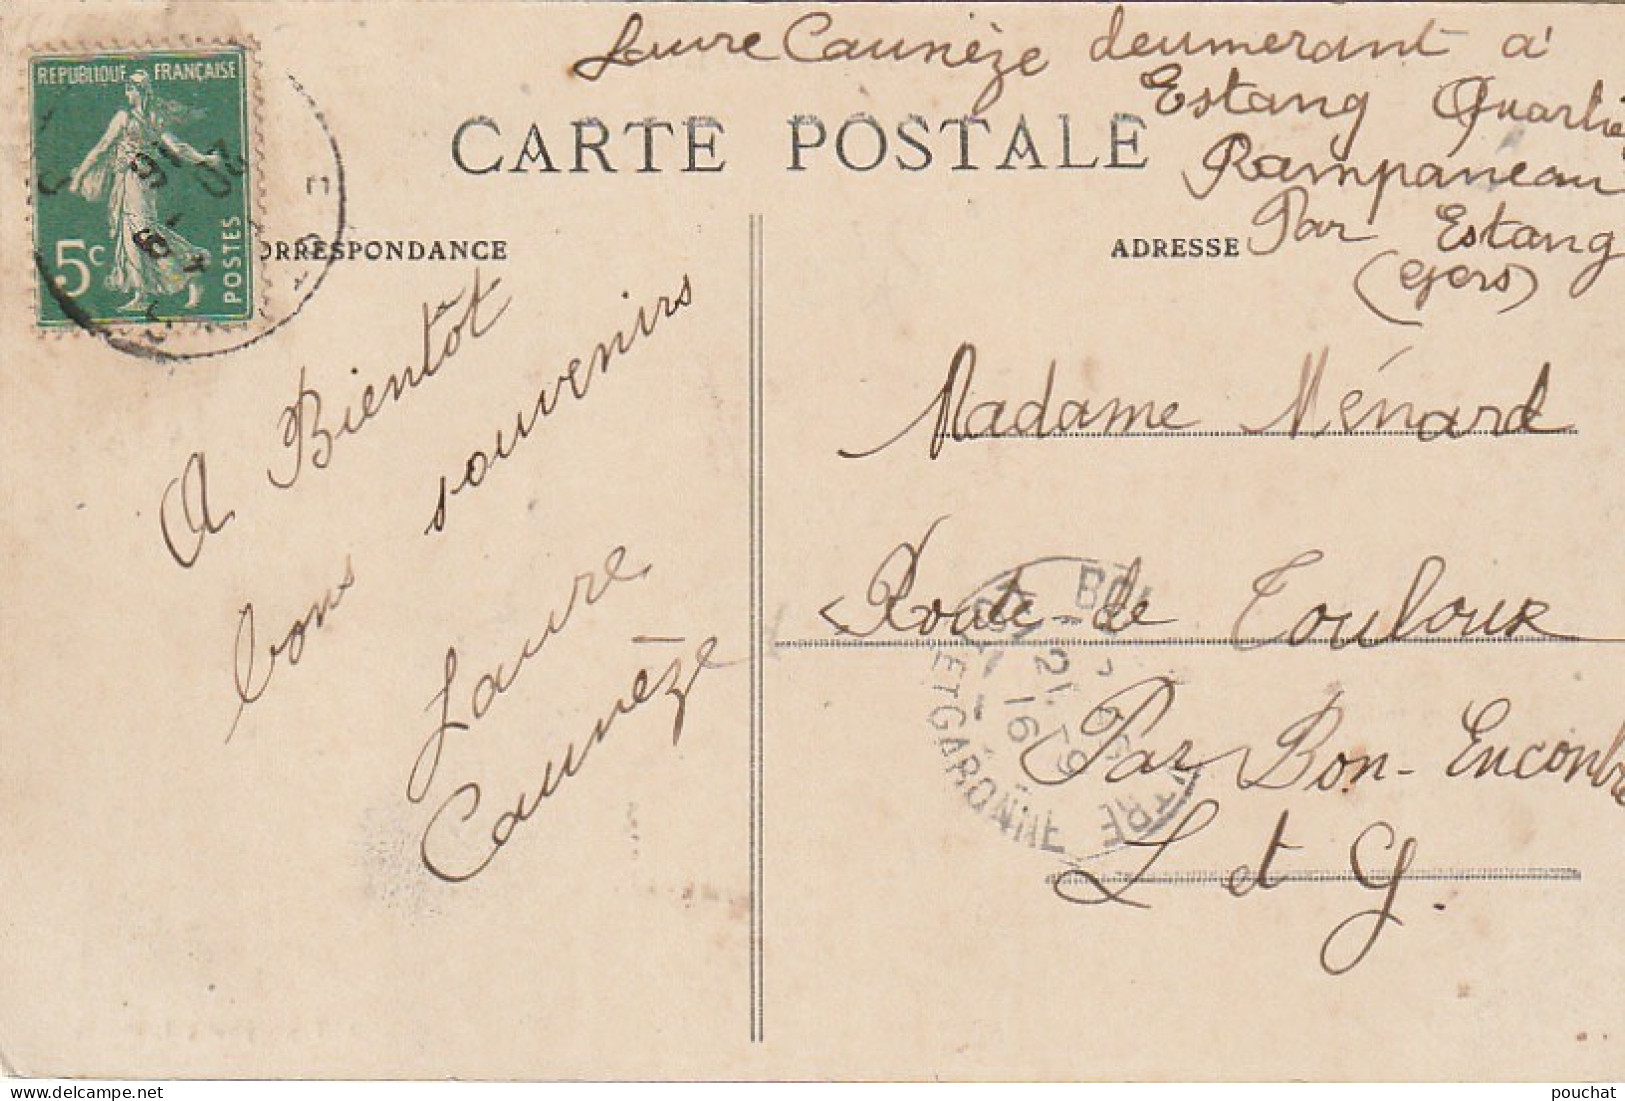 Laure Caunèze deumerant a'
Estang Quartie
Rampaneau
Par Estang
(Gers)
REPUBLIQUE FRANÇAISE
5c
POSTES
CARTE POSTALE
ORRESPONDANCE
ADRESSE
A Bientôt
bons souvenirs
Laure
Caunèze
Madame Ménard
Route de Toulouse
Par Bon-Enconbre
L et G.
21-9
16
ET GARONNE
pouchat